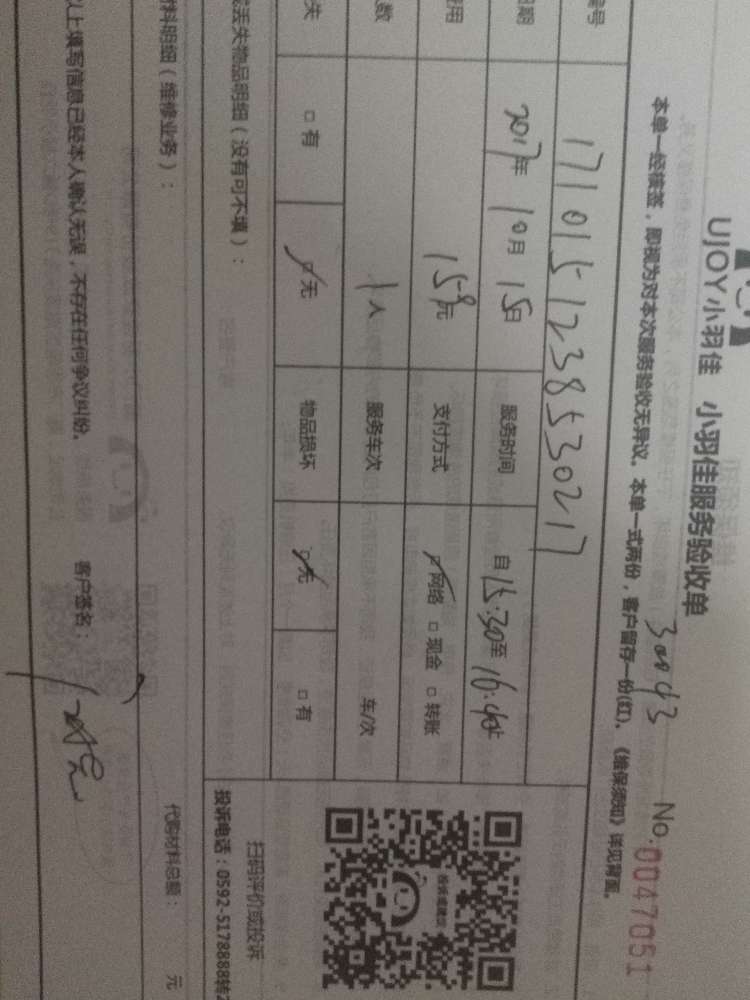 UJOY小羽佳 小羽佳服务验收单
No.0047051
本单一经接签，即视为对本次服务验收无异议。本单一式两份，客户留存一份(红)。《维保须知》详见背面。
编号 17101512385530217
日期 2017年10月15日 服务时间 自15:30至16:40止
费用 158元 支付方式 网络 □现金 □转账
数 1人 服务车次 车/次
失 □有 □无 物品损坏 □无 □有
丢失物品明细（没有可不填）：
扫码评价或投诉
投诉电话：0592-5178888转2
料明细（维修业务）：
代购材料总额： 元
以上填写信息已经本人确认无误，不存在任何争议纠纷。 客户签名：